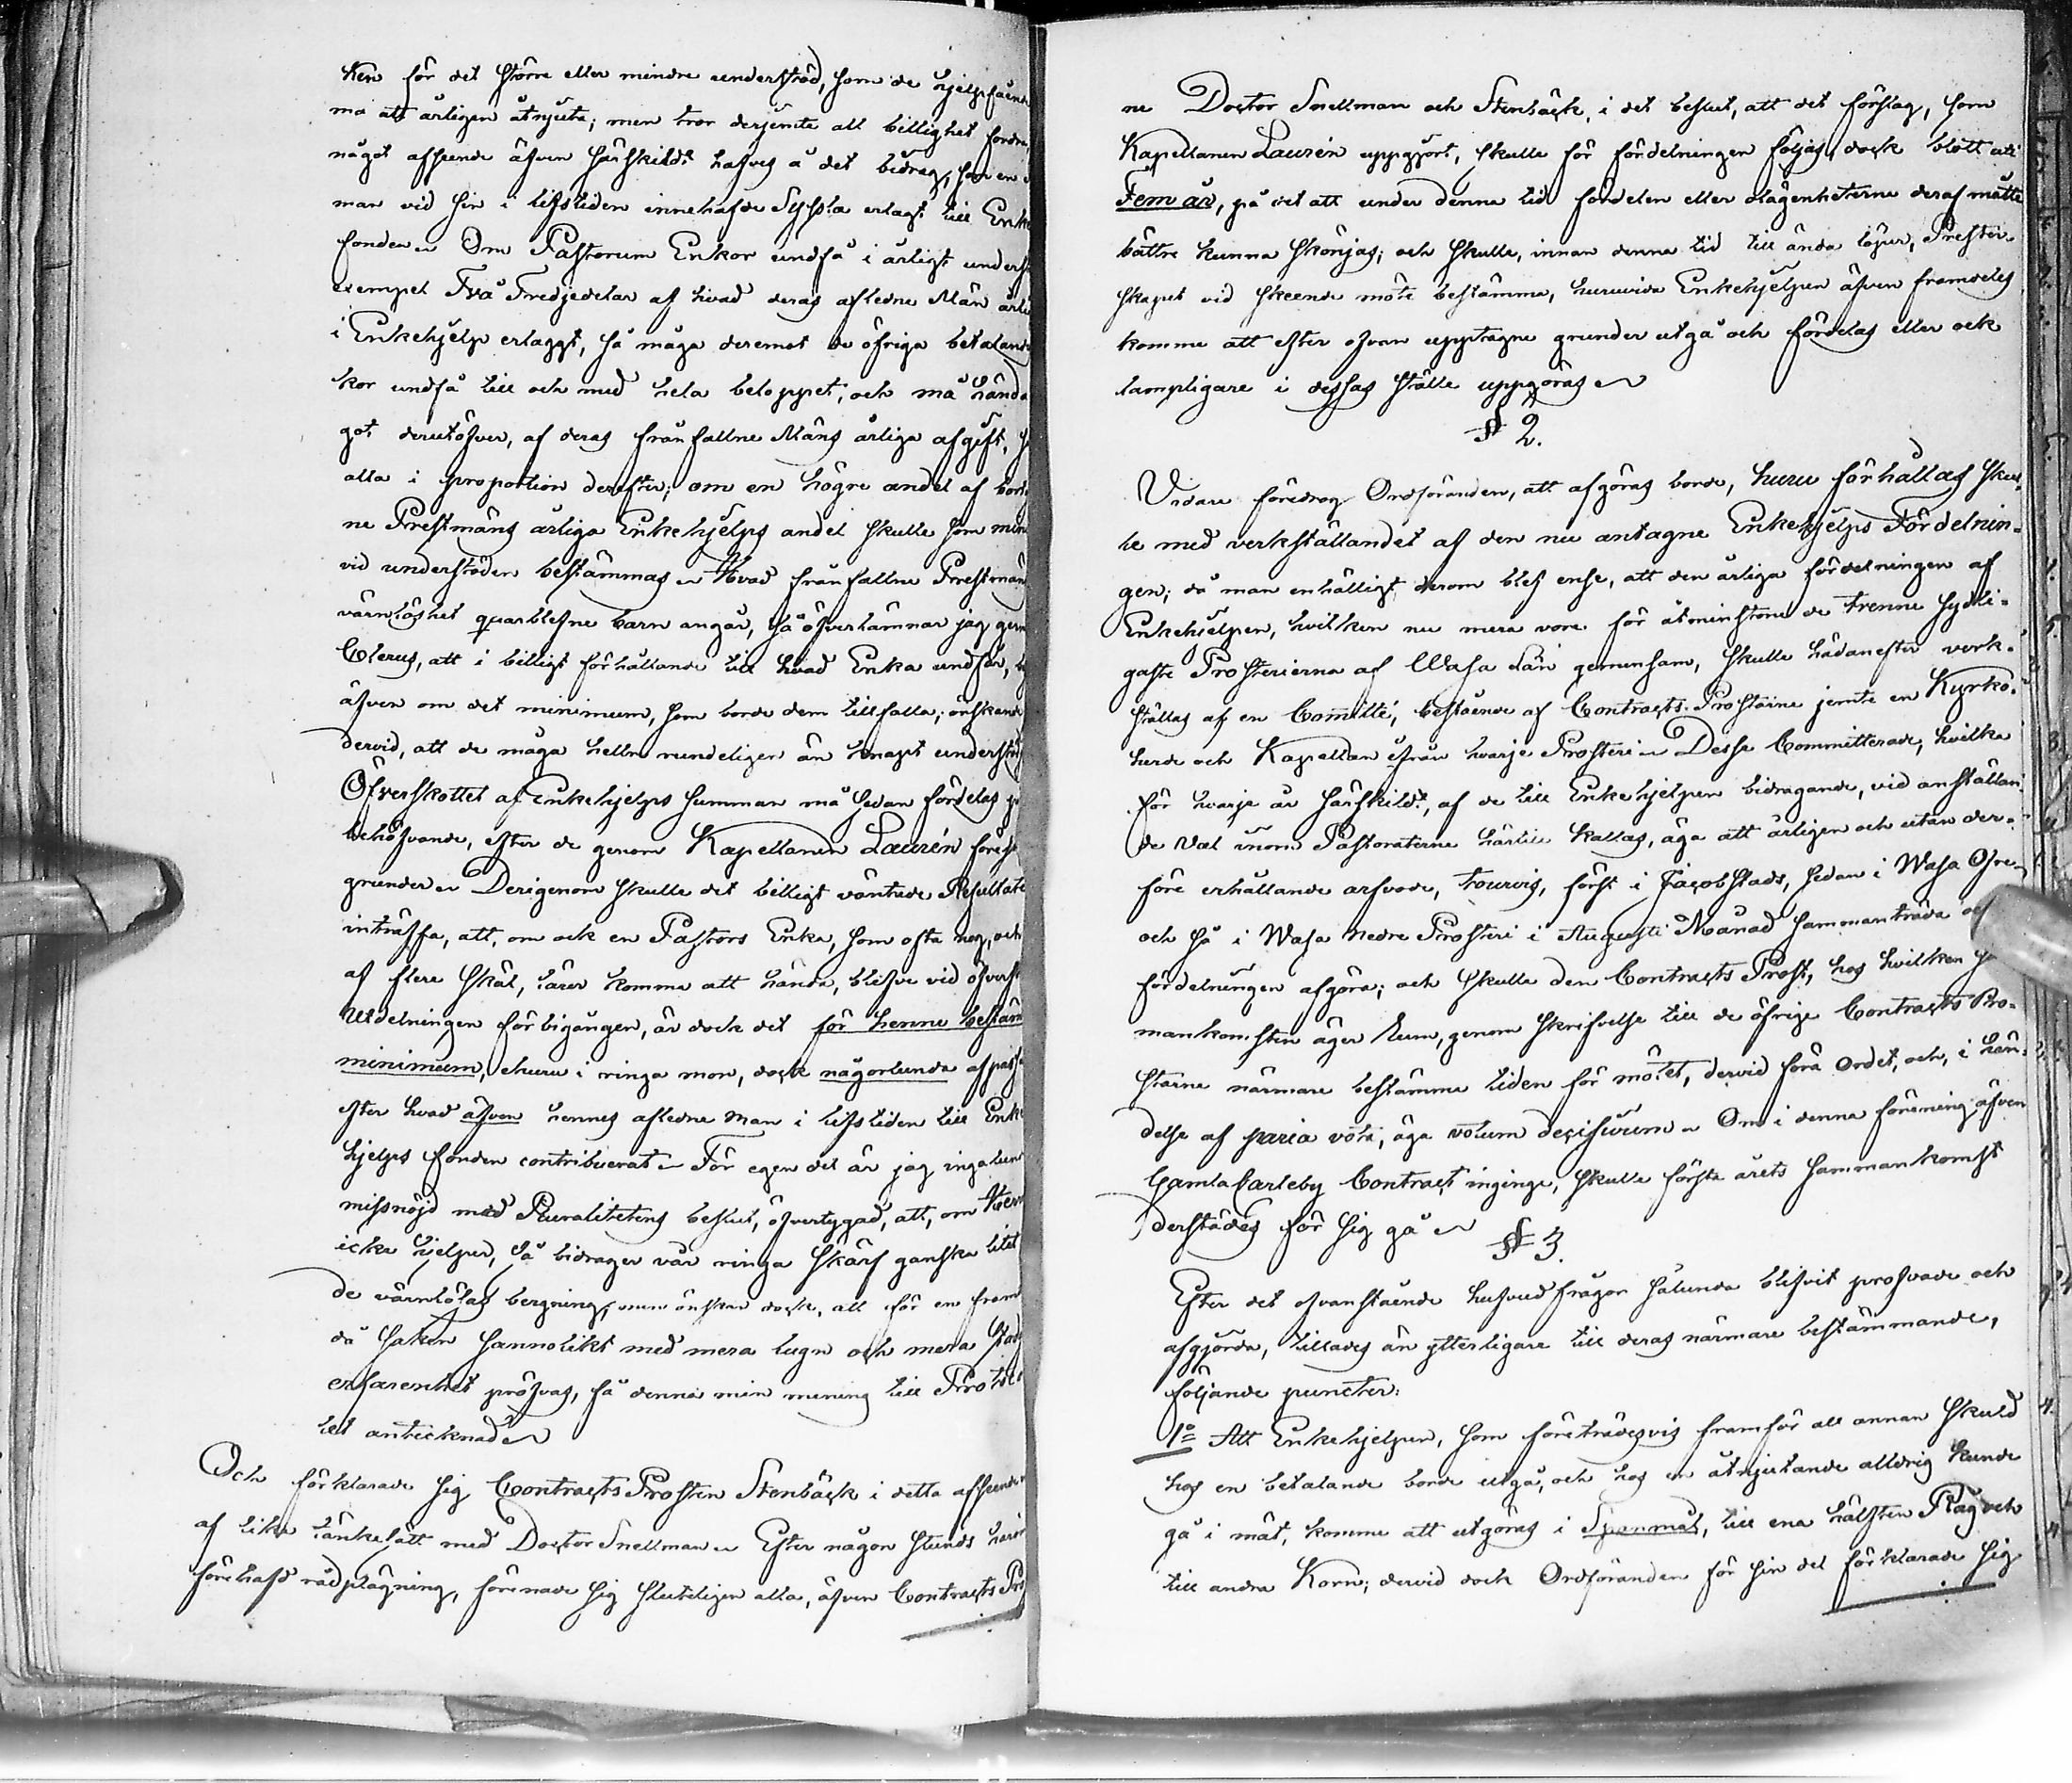 ken för det större eller mindre understöd, som de hjelpfåend
må att årligen åtnjuta; men tror derjemte att billighet fordra,
något afseende äfven särskildt hafves å det bidrag, som en
man vid sin i lifstiden innehafde Syssla erlagt till Enke
fonden Om Pastorum Enkor undfå i årligt underst
exempel Två Tredjedelar af hvad deras aflidne Män årli
i Enkehjelp erlaggt, så måga deremot de öfriga betalande
kor undfå till och med hela beloppet, och må hända
got derutöfver, af deras frånfallne Mäns årliga afgift,
alla i proportion derefter; om en högre andel af bort
ne Prestmäns årliga Enkehjelps andel skulle som mini
vid understöden bestämmas Hvad frånfallne Prestmän
värnlöshet quarblefne barn angår, så öfverlämnar jag gern
Clerus, att i billigt förhållande till hvad Enka undfår,
äfven om det minimum, som borde dem tillfalla; önskande
dervid, att de måga hellre rundeligen än knapt understöd
Öfverskottet af Enkehjelps summan må sedan fördelas
behöfvande, efter de genom Kapellanen Laurén föresl
grunder Derigenom skulle det billigt väntade Resultate
inträffa, att, om ock en Pastors Enka, som ofta nog, och
af flere skäl, lärer komma att hända, blefve vid öfversk
utdelningen förbigången, är dock det för henne bestäm
minimum, ehuru i ringa mon, dock någorlunda afpass
efter hvad äfven hennes aflidne man i lifstiden till Enke
hjelps fonden contribuerat För egen del är jag ingalund
missnöjd med Pluralitetens beslut, öfvertygad, att, om Herr
icke hjelper, så bidrager vår ringa skärf ganska litet
de värnlösas bergning, men önskar dock, att för en fram
då saken sannolikt med mera lugn och mera stad
erfarenhet pröfvas, få denna min mening till Protoco
let antecknad
Och förklarade sig Contracts Prosten Stenbäck i detta afseende
af lika tänkesätt med Doctor Snellman Efter någon stunds häröf
förehafd rådplägning, förenade sig sluteligen alla, äfven Contracts Pro
ne Doctor Snellman och Stenbäck, i det beslut, att det förslag, som
Kapellanen Laurén uppgjort, skulle för fördelningen följas, dock blott uti
Fem år, på det att under denna tid fördelen eller olägenheterne deraf måtte
bättre kunna skönjas; och skulle, innan denna tid till ända löper, Prester-
skapet vid skeende möte bestämma, huruvida Enkehjelpen äfven framdeles
komme att efter ofvan upptagne grunder utgå och fördelas eller ock
lämpligare i dessas ställe uppgöras
§ 2.
Vidare föredrog Ordföranden, att afgöras borde, huru förhållas skul-
le med verkställandet af den nu antagne Enkehjelps Fördelnin-
gen; då man enhälligt derom blef ense, att den årliga fördelningen af
Enkehjelpen, hvilken nu mera vore för åtminstone de trenne sydli-
gaste Prosterierna af Wasa Län gemensam, skulle hädanefter verk-
ställas af en Committé, bestående af Contracts Prostarne jemte en Kyrko-
herde och Kapellan ifrån hvarje Prosteri Desse Committerade, hvilka
för hvarje år särskildt, af de till Enkehjelpen bidragande, vid anställan-
de val inom Pastoraterne härtill kallas, äga att årligen och utan der-
före erhållande arfvode, tourvis, först i Jacobstads, sedan i Wasa Öfre
och så i Wasa Nedre Prosteri i Augusti Månad sammanträda oc
fördelningen afgöra; och skulle den Contracts Prost, hos hvilken sa
mankomsten äger rum, genom skrifvelse till de öfrige Contracts Pro-
starne närmare bestämma tiden för mötet, dervid föra ordet, och, i hän-
delse af paria vota, äga votum decisivum Om i denna förening äfven
Gamla Carleby Contract inginge, skulle första årets sammankomst
derstädes för sig gå
§ 3.
Efter det ofvanstående hufvudfrågor sålunda blifvit pröfvade och
afgjorda, tillades än ytterligare till deras närmare bestämmande,
följande puncter:
1º Att Enkehjelpen, som företrädesvis framför all annan skuld
hos en betalande borde utgå, och hos en åtnjutande aldrig kunde
gå i mät, komme att utgöras i Spanmål, till ena hälften Råg och
till andra Korn; dervid dock Ordföranden för sin del förklarade sig